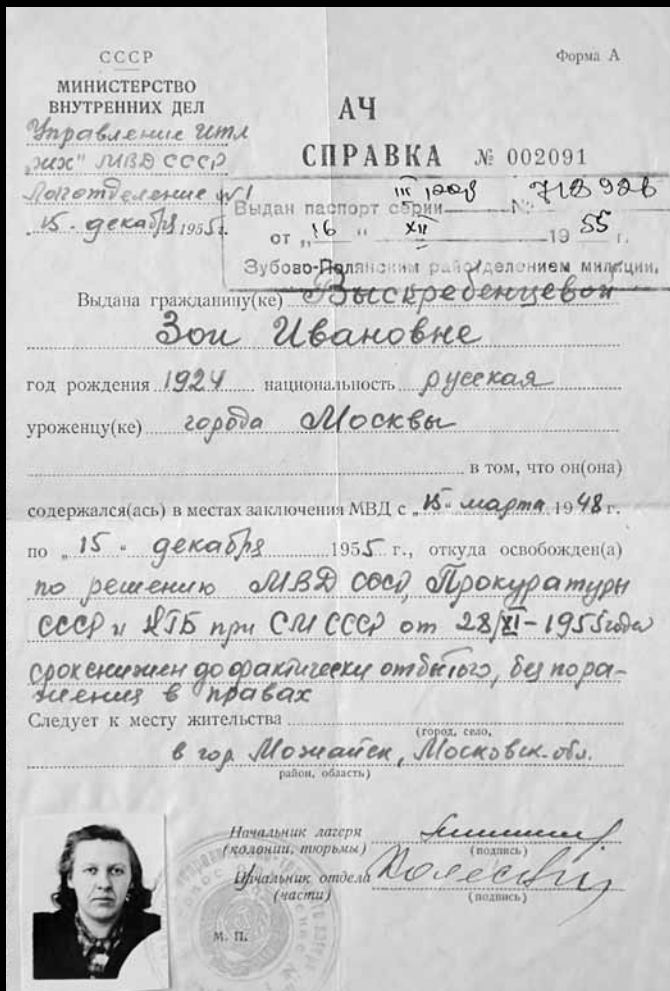 СССР
Форма А
МИНИСТЕРСТВО
ВНУТРЕННИХ ДЕЛ
АЧ
Управление ИТЛ
"ЖХ" МВД СССР
СПРАВКА № 002091
Лаготделение № 1
"15" декабря 1955 г.
Выдан паспорт серии III № 718926
от "16" XII 1955 г.
Зубово-Полянским райотделением милиции.
Выдана гражданину(ке) Выскребенцевой
Зои Ивановне
год рождения 1924 национальность русская
уроженцу(ке) города Москвы
в том, что он(она)
содержался(ась) в местах заключения МВД с "15" марта 1948 г.
по "15" декабря 1955 г., откуда освобожден(а)
по решению МВД СССР, Прокуратуры
СССР и КГБ при СМ СССР от 28/XI-1955 года
срок снижен до фактически отбытого, без пора-
жения в правах
Следует к месту жительства
(город, село,
в гор Можайск, Московск. обл.
район, область)
Начальник лагеря
(колонии, тюрьмы)
(подпись)
Начальник отдела
(части)
(подпись)
М. П.